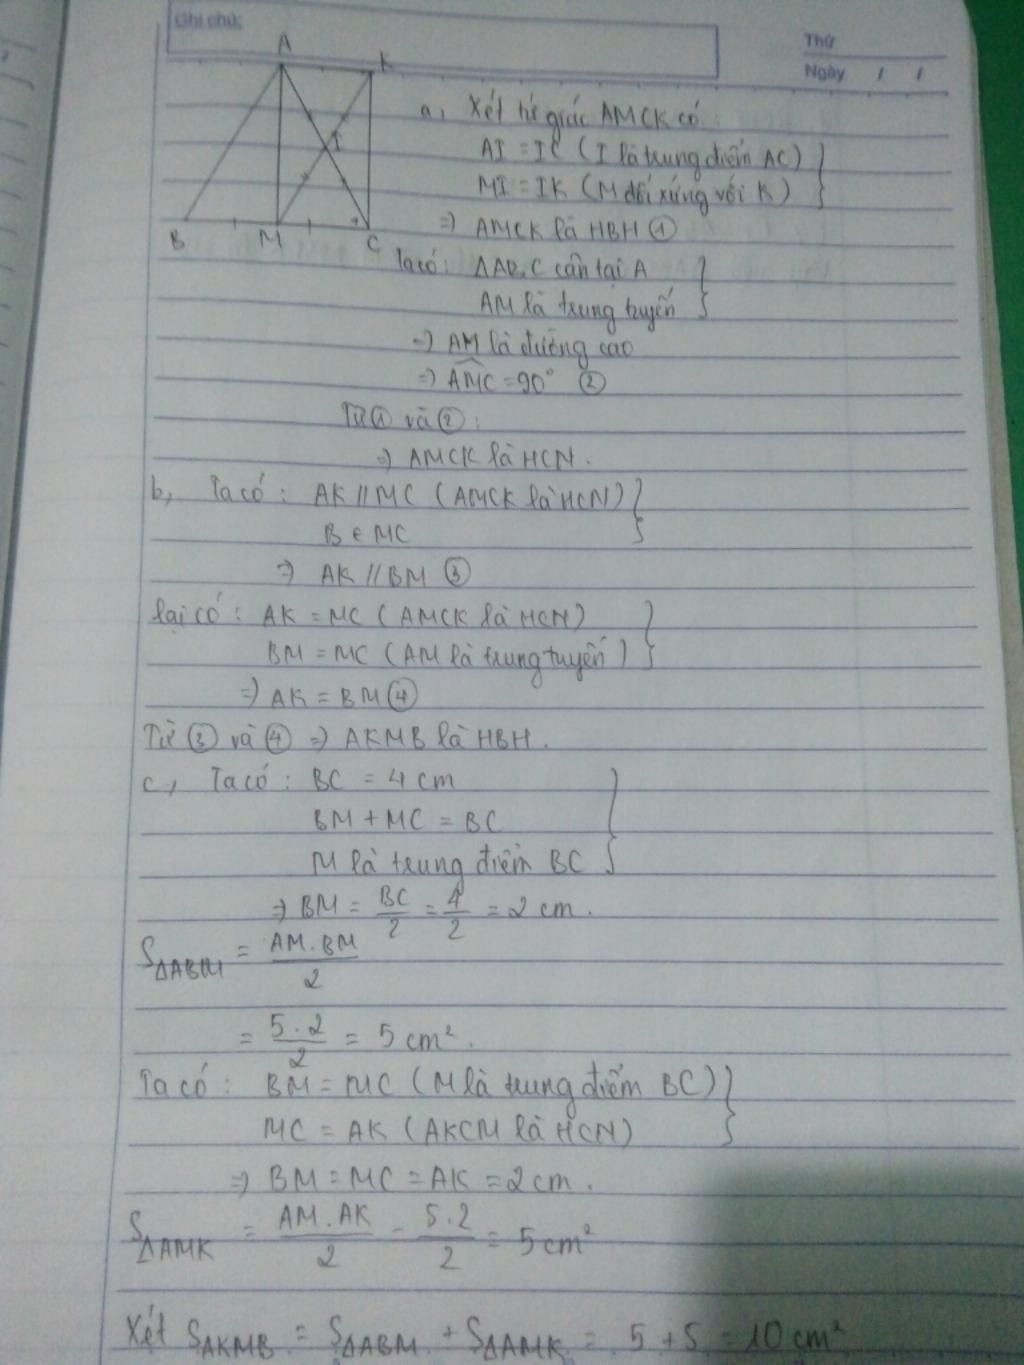 Ghi chú:
Thứ
Ngày / /
A
K
I
B
M
C
a, Xét tứ giác AMCK có:
AI = IC (I là trung điểm AC)
MI = IK (M đối xứng với K)
=> AMCK là HBH ①
Ta có: ΔABC cân tại A
AM là trung tuyến
=> AM là đường cao
=> AMC = 90° ②
Từ ① và ②:
=> AMCK là HCN.
b, Ta có: AK // MC (AMCK là HCN)
B ∈ MC
=> AK // BM ③
Lại có: AK = MC (AMCK là HCN)
BM = MC (AM là trung tuyến)
=> AK = BM ④
Từ ③ và ④ => AKMB là HBH.
c, Ta có: BC = 4 cm
BM + MC = BC
M là trung điểm BC
=> BM = BC/2 = 4/2 = 2 cm.
SΔABM = AM.BM/2
= 5.2/2 = 5 cm².
Ta có: BM = MC (M là trung điểm BC)
MC = AK (AKCM là HCN)
=> BM = MC = AK = 2 cm.
SΔAMK = AM.AK/2 = 5.2/2 = 5 cm²
Xét SAKMB = SΔABM + SΔAMK = 5 + 5 = 10 cm²